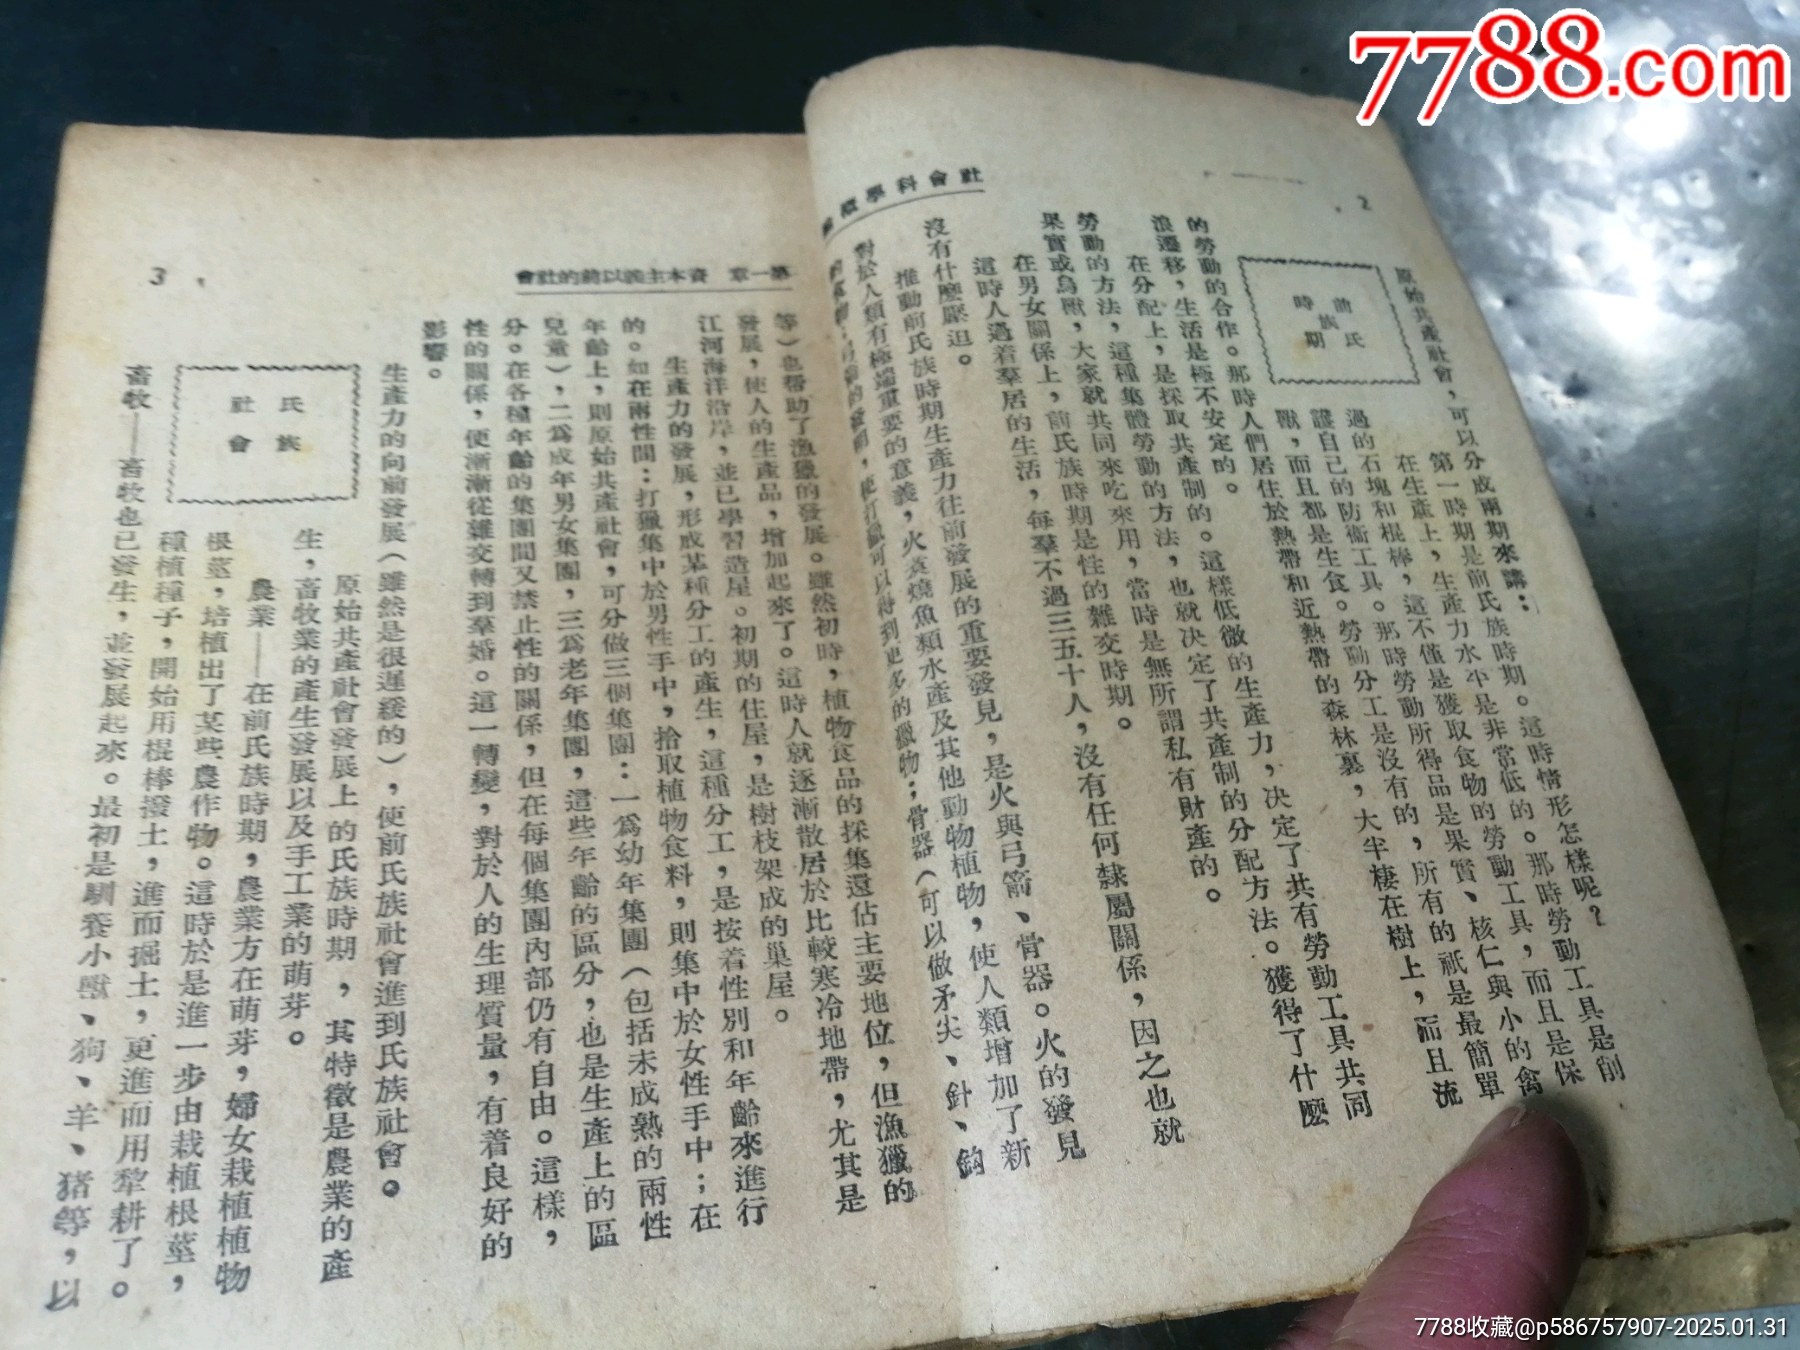 2
社會科學概
原始共產社會，可以分成兩期來講：
前氏族時期
第一時期是前氏族時期。這時情形怎樣呢？
在生產上，生產力水平是非常低的。那時勞動工具是削
過的石塊和棍棒，這不僅是獲取食物的勞動工具，而且是保
護自己的防衞工具。那時勞動所得品是果實、核仁與小的禽
獸，而且都是生食。勞動分工是沒有的，所有的祇是最簡單
的勞動的合作。那時人們居住於熱帶和近熱帶的森林裏，大半棲在樹上，而且流
浪遷移，生活是極不安定的。
在分配上，是採取共產制的。這樣低微的生產力，决定了共有勞動工具共同
勞動的方法，這種集體勞動的方法，也就决定了共產制的分配方法。獲得了什麽
果實或鳥獸，大家就共同來吃來用，當時是無所謂私有財產的。
在男女關係上，前氏族時期是性的雜交時期。
這時人過着羣居的生活，每羣不過三五十人，沒有任何隸屬關係，因之也就
沒有什麽壓迫。
推動前氏族時期生產力往前發展的重要發見，是火與弓箭、骨器。火的發見
對於人類有極端重要的意義，火煑燒魚類水產及其他動物植物，使人類增加了新
的發明，使打獵可以得到更多的獵物；骨器（可以做矛尖、針、鈎
第一章　資本主義以前的社會
3
等）也帮助了漁獵的發展。雖然初時，植物食品的採集還佔主要地位，但漁獵的
發展，使人的生產品，增加起來了。這時人就逐漸散居於比較寒冷地帶，尤其是
江河海洋沿岸，並已學習造屋。初期的住屋，是樹枝架成的巢屋。
生產力的發展，形成某種分工的產生，這種分工，是按着性別和年齡來進行
的。如在兩性間：打獵集中於男性手中，拾取植物食料，則集中於女性手中；在
年齡上，則原始共產社會，可分做三個集團：一爲幼年集團（包括未成熟的兩性
兒童），二爲成年男女集團，三爲老年集團，這些年齡的區分，也是生產上的區
分。在各種年齡的集團間又禁止性的關係，但在每個集團內部仍有自由。這樣，
性的關係，便漸漸從雜交轉到羣婚。這一轉變，對於人的生理質量，有着良好的
影響。
生產力的向前發展（雖然是很遲緩的），使前氏族社會進到氏族社會。
氏族社會
原始共產社會發展上的氏族時期，其特徵是農業的產
生，畜牧業的產生發展以及手工業的萌芽。
農業——在前氏族時期，農業方在萌芽，婦女栽植植物
根莖，培植出了某些農作物。這時於是進一步由栽植根莖，
種植種子，開始用棍棒撥土，進而掘土，更進而用犂耕了。
畜牧——畜牧也已發生，並發展起來。最初是馴養小獸、狗、羊、猪等，以
7788.com
7788收藏@p586757907-2025.01.31